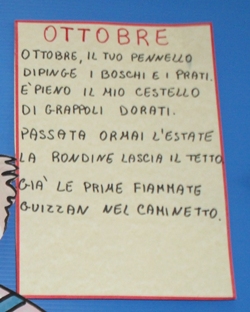 OTTOBRE
OTTOBRE, IL TUO PENNELLO
DIPINGE I BOSCHI E I PRATI.
E' PIENO IL MIO CESTELLO
DI GRAPPOLI DORATI.
PASSATA ORMAI L'ESTATE
LA RONDINE LASCIA IL TETTO
GIÀ LE PRIME FIAMMATE
GUIZZAN NEL CAMINETTO.